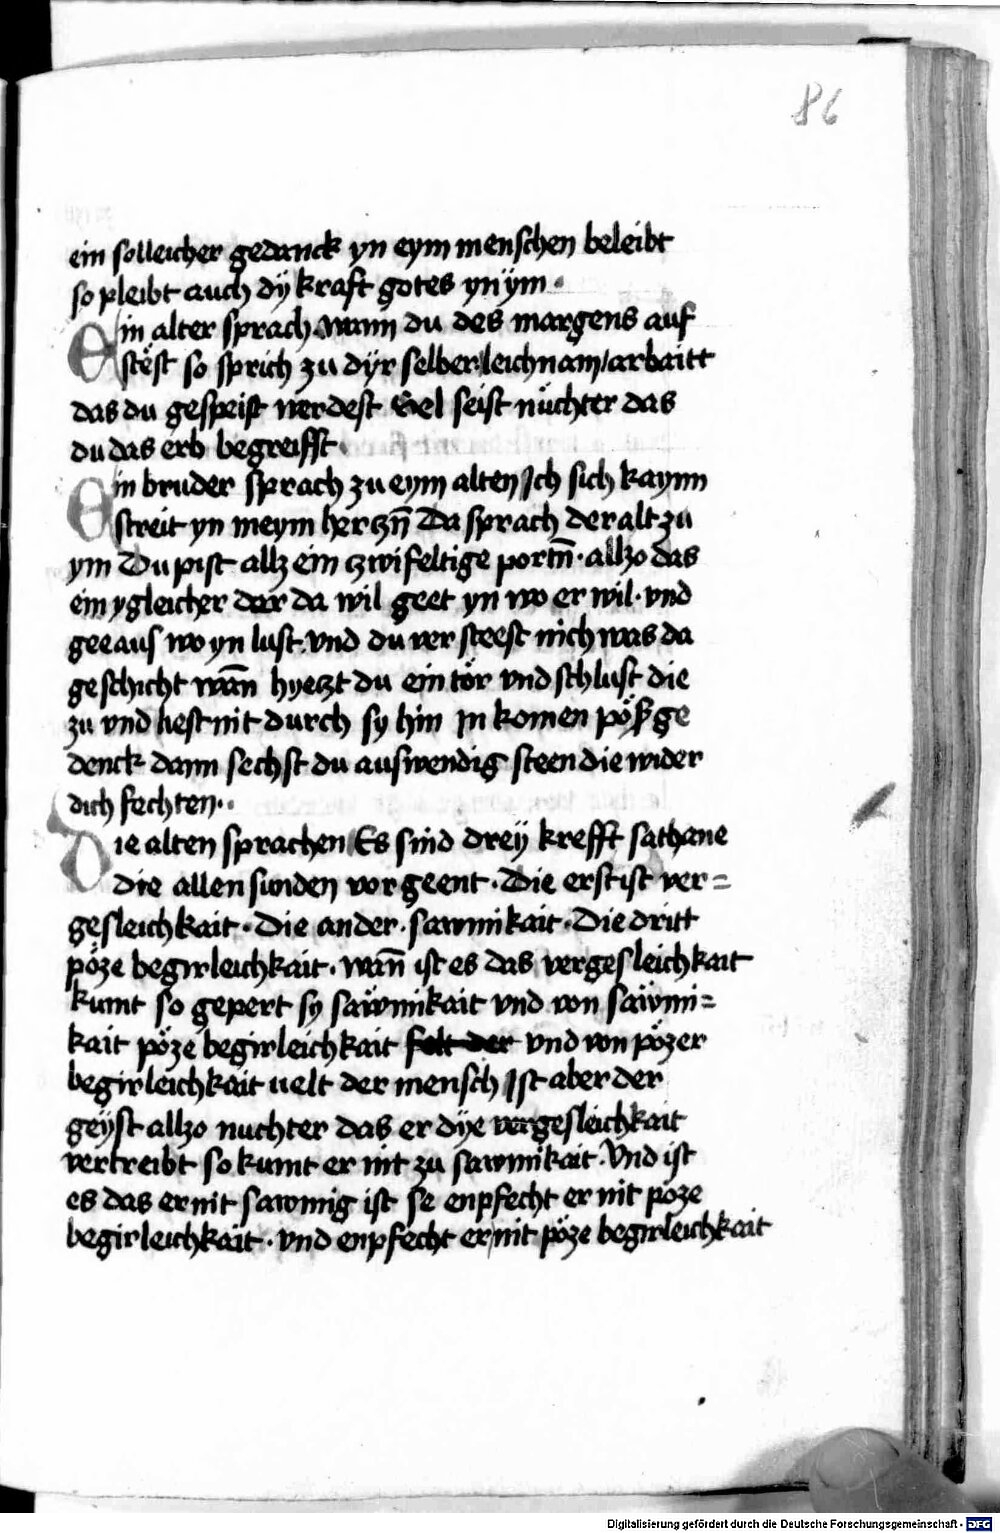 86
ein solleicher gedanck yn eym menschen beleibt
so pleibt auch dÿ kraft gotes yn ÿm ·
Ein alter sprach wann du des margens auf
stëst so sprich zu dÿr selber leichnam / arbaitt
das du gespeist werdest Sel seist nüchter das
du das erb begreifft ·
Ein bruder sprach zu eym alten Ich sich kaynn
streit yn meym hertzn̄ Da sprach der alt zu
ym Du pist allz ein zwifeltige portn̄ · allzo das
ein ygleicher dar da wil geet yn wo er wil · vnd
gee aus wo yn lust · vnd du ver steest nich was da
geschicht wan̄ hyetzt du ein tör vnd schlust die
zu vnd liest nit durch sy hin In komen pöß ge
denck dann sechst du auswendig steen die wider
dich fechten ··
Die alten sprachen Es sind dreÿ krefft sathane
die allen sunden vor geent · Die erst ist ver=
gesleichkait · Die ander · sawmikait · Die dritt
pöze begirleichkait · wan̄ ist es das vergesleichkait
kumt so gepert sy saẅmikait vnd von saẅmi=
kait pöze begirleichkait felt der vnd von pözer
begirleichkait uelt der mensch Ist aber der
geÿst allzo nuchter das er dÿe vergesleichkait
vertreibt so kumt er nit zu sawmikait · Vnd ist
es das er nit sawmig ist se enpfecht er nit poze
begirleichkait · vnd enpfecht er nit pöze begirleichkait
Digitalisierung gefördert durch die Deutsche Forschungsgemeinschaft - DFG